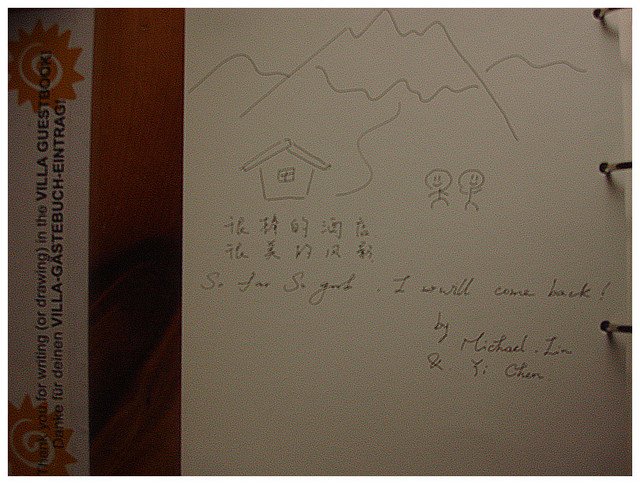 Thank you for writing (or drawing) in the VILLA GUESTBOOK!
Danke für deinen VILLA-GÄSTEBUCH-EINTRAG!
很棒的酒店
很美的风景
So far So good. I will come back!
by
Michael. Lin
& Yi Chen.